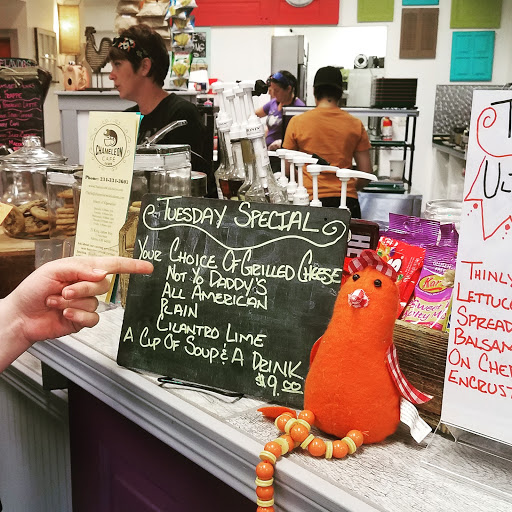 CHAMELEON
CAFE
TUESDAY SPECIAL
YOUR CHOICE OF GRILLED CHEESE
NOT YO DADDY'S
ALL AMERICAN
PLAIN
CILANTRO LIME
A CUP OF SOUP & A DRINK
$9.00
THINLY
LETTUCE
SPREAD
BALSAM
ON CHE
ENCRUST